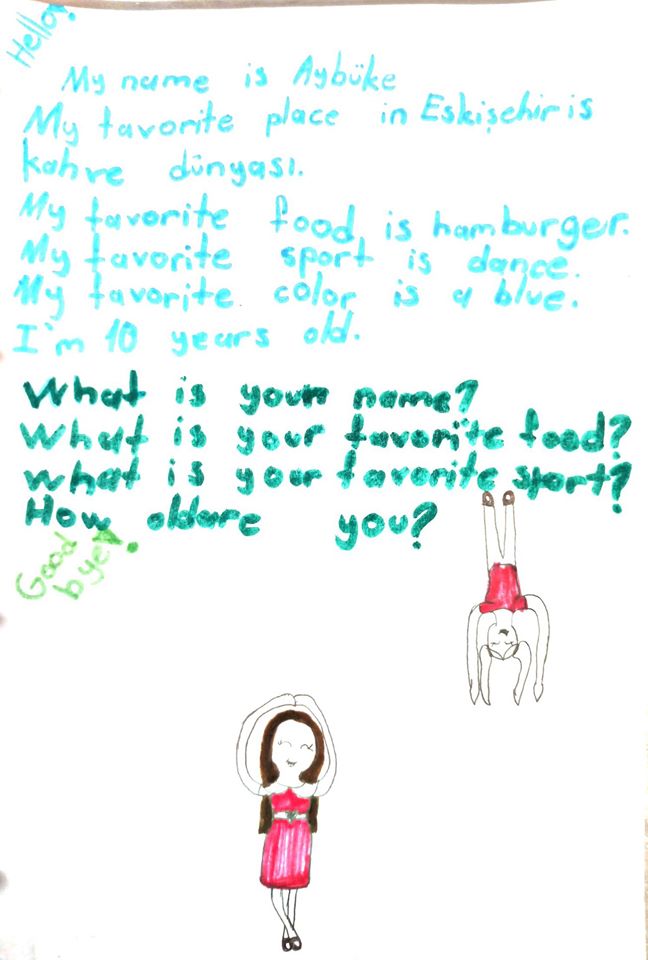 Hello!
My name is Aybüke
My favorite place in Eskişehir is
kahve dünyası.
My favorite food is hamburger.
My favorite sport is dance.
My favorite color is a blue.
I'm 10 years old.
What is your name?
What is your favorite food?
What is your favorite sport?
How old are you?
Good
bye!